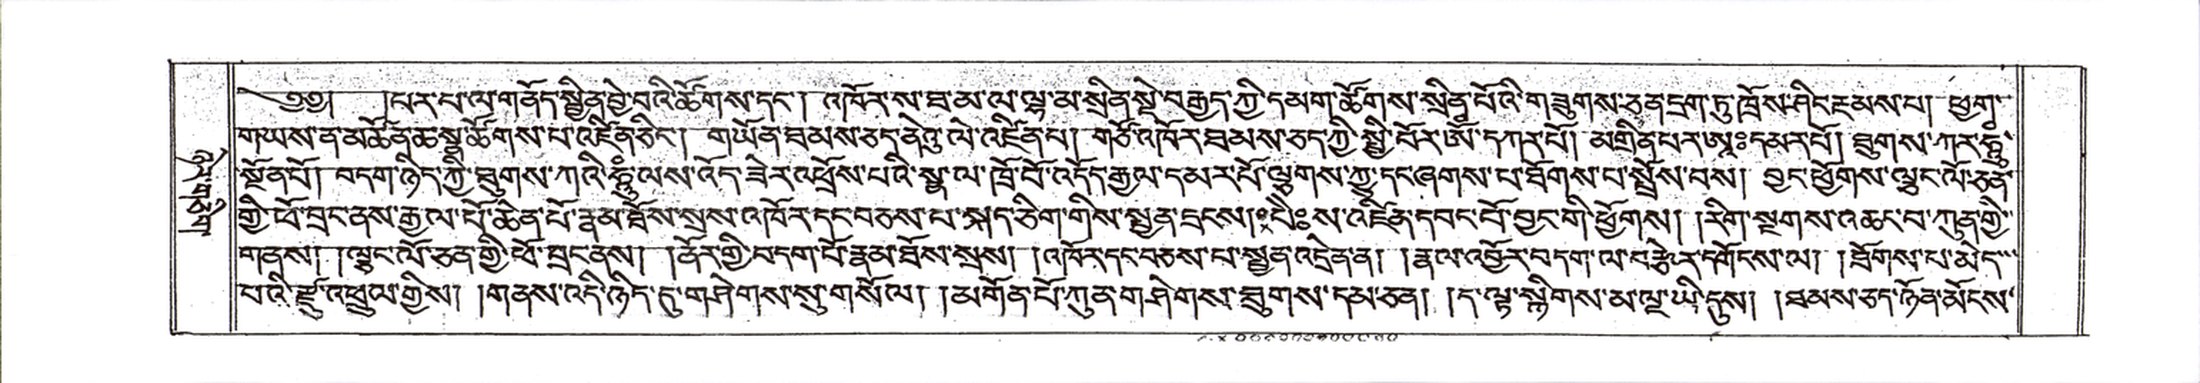 ༄༅། །པར་པ་ལ་གནོད་སྦྱིན་བྱེ་བའི་ཚོགས་དང་། འཁོར་ས་ཐ་མ་ལ་ལྷ་མ་སྲིན་སྡེ་བརྒྱད་ཀྱི་དམག་ཚོགས་སྲིན་པོའི་གཟུགས་ཅན་དྲག་ཏུ་ཁྲོས་ཤིང་རྔམས་པ། ཕྱག་
གཡས་ན་མཚོན་ཆ་སྣ་ཚོགས་པ་འཛིན་ཅིང་། གཡོན་ཐམས་ཅད་ནེའུ་ལེ་འཛིན་པ། གཙོ་འཁོར་ཐམས་ཅད་ཀྱི་སྤྱི་བོར་ཨོཾ་དཀར་པོ། མགྲིན་པར་ཨཱཿདམར་པོ། ཐུགས་ཀར་ཧཱུྃ་
སྔོན་པོ། བདག་ཉིད་ཀྱི་ཐུགས་ཀའི་ཧཱུྃ་ལས་འོད་ཟེར་འཕྲོས་པའི་སྣ་ལ་ཁྲོ་བོ་འདོད་རྒྱལ་དམར་པོ་ལྕགས་ཀྱུ་དང་ཞགས་པ་ཐོགས་པ་སྤྲོས་པས། བྱང་ཕྱོགས་ལྕང་ལོ་ཅན་
གྱི་ཕོ་བྲང་ནས་རྒྱལ་པོ་ཆེན་པོ་རྣམ་ཐོས་སྲས་འཁོར་དང་བཅས་པ་སྐད་ཅིག་གིས་སྤྱན་དྲངས། ས་འཛིན་དབང་པོ་བྱང་གི་ཕྱོགས། །རིག་སྔགས་འཆང་བ་ཀུན་གྱི་
གནས། །ལྕང་ལོ་ཅན་གྱི་ཕོ་བྲང་ནས། །ནོར་གྱི་བདག་པོ་རྣམ་ཐོས་སྲས། །འཁོར་དང་བཅས་པ་སྤྱན་འདྲེན་ན། །རྣལ་འབྱོར་བདག་ལ་བརྩེར་དགོངས་ལ། །ཐོགས་པ་མེད་
པའི་རྫུ་འཕྲུལ་གྱིས། །གནས་འདི་ཉིད་དུ་གཤེགས་སུ་གསོལ། །མགོན་པོ་ཀུན་གཤེགས་ཐུགས་དམ་ཅན། །ད་ལྟ་སྙིགས་མ་ལྔ་ཡི་དུས། །ཐམས་ཅད་ཉོན་མོངས་